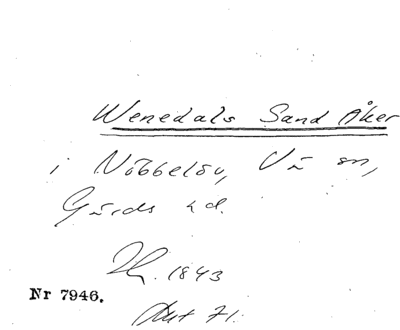 Wenedals Sand Åker
i Nöbbelöv, Vä sn,
Gärds hd.
1843
Nr 7946.
Akt 71.